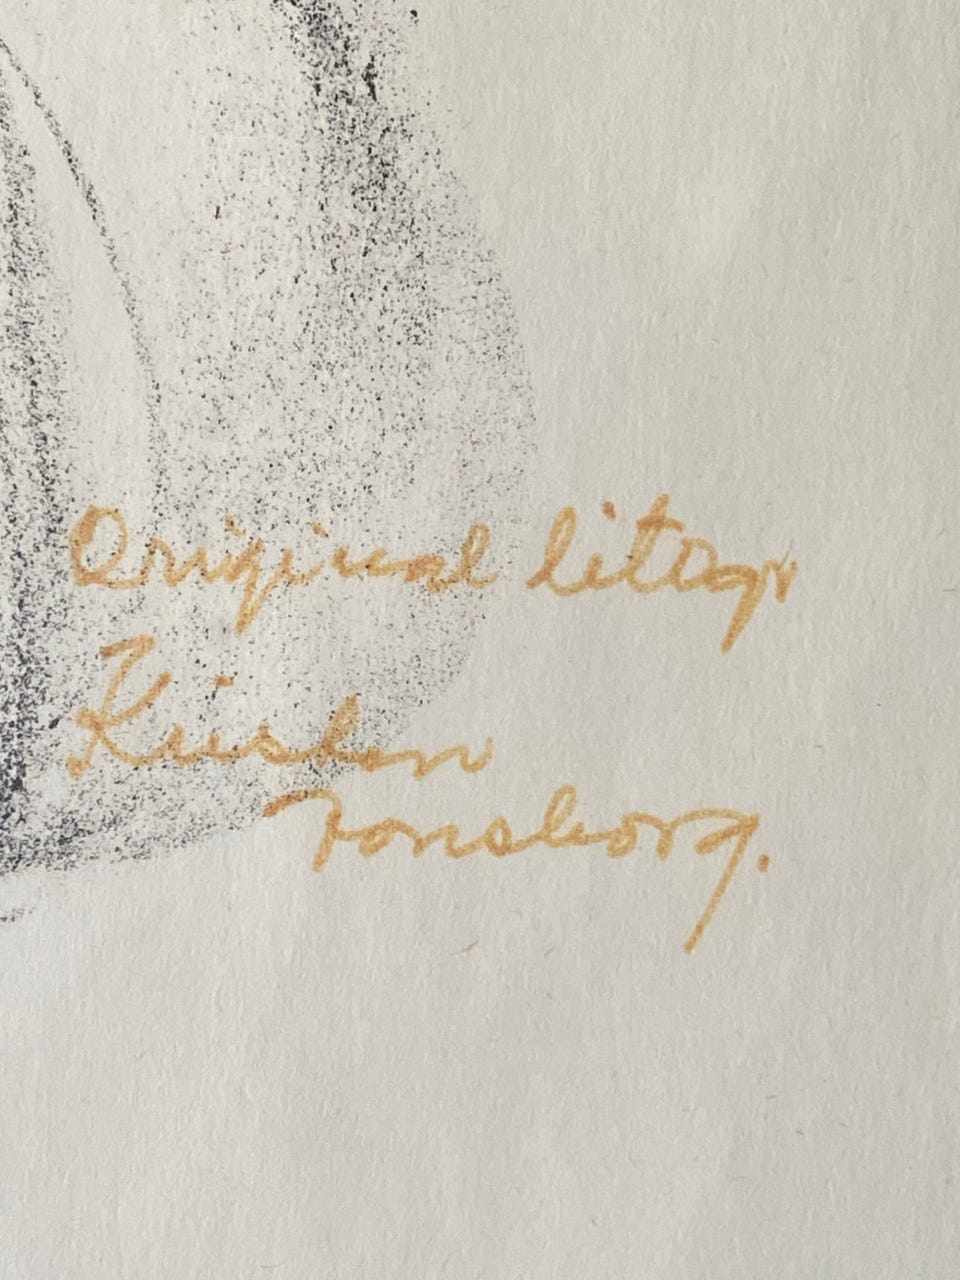 Original litogr
Kirsten
Tonsborg.